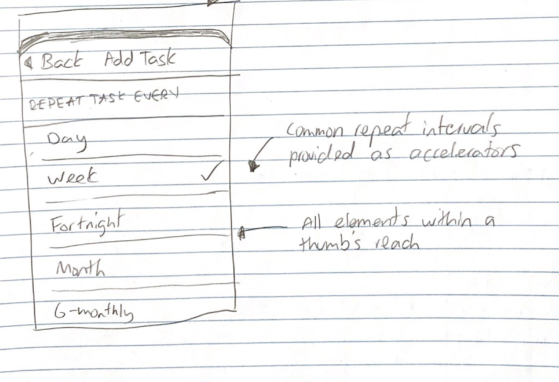 Back Add Task
REPEAT TASK EVERY
Day
Week
Fortnight
Month
6-monthly
Common repeat intervals
provided as accelerators
All elements within a
thumb's reach